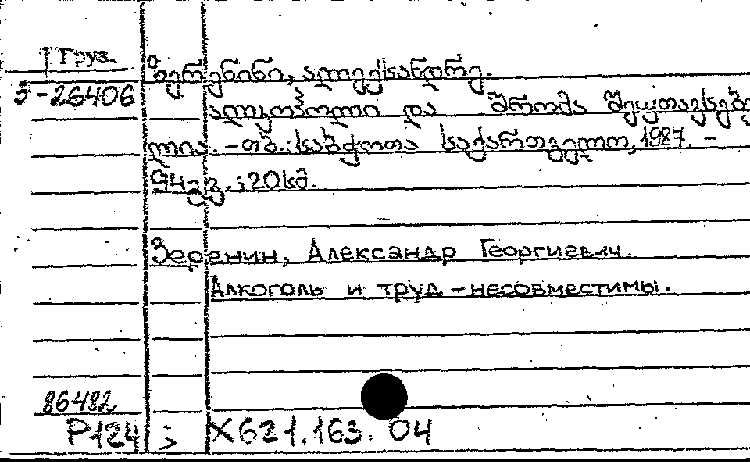 Груз.
ზერენინი, ალექსანდრე.
3-26406
ალკოჰოლი და შრომა შეუთავსებე
ლია. - თბ.: საბჭოთა საქართველო, 1987. -
94 გვ.; 20 სმ.
Зеренин, Александр Георгиевич.
Алкоголь и труд - несовместимы.
86482
P124 ; X621.163.04